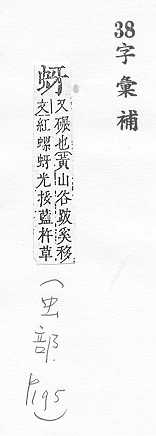 38字彙補
蚜
又碾也黃山谷跋奚移
文紅螺蚜光挼藍杵草
(虫部 P195)